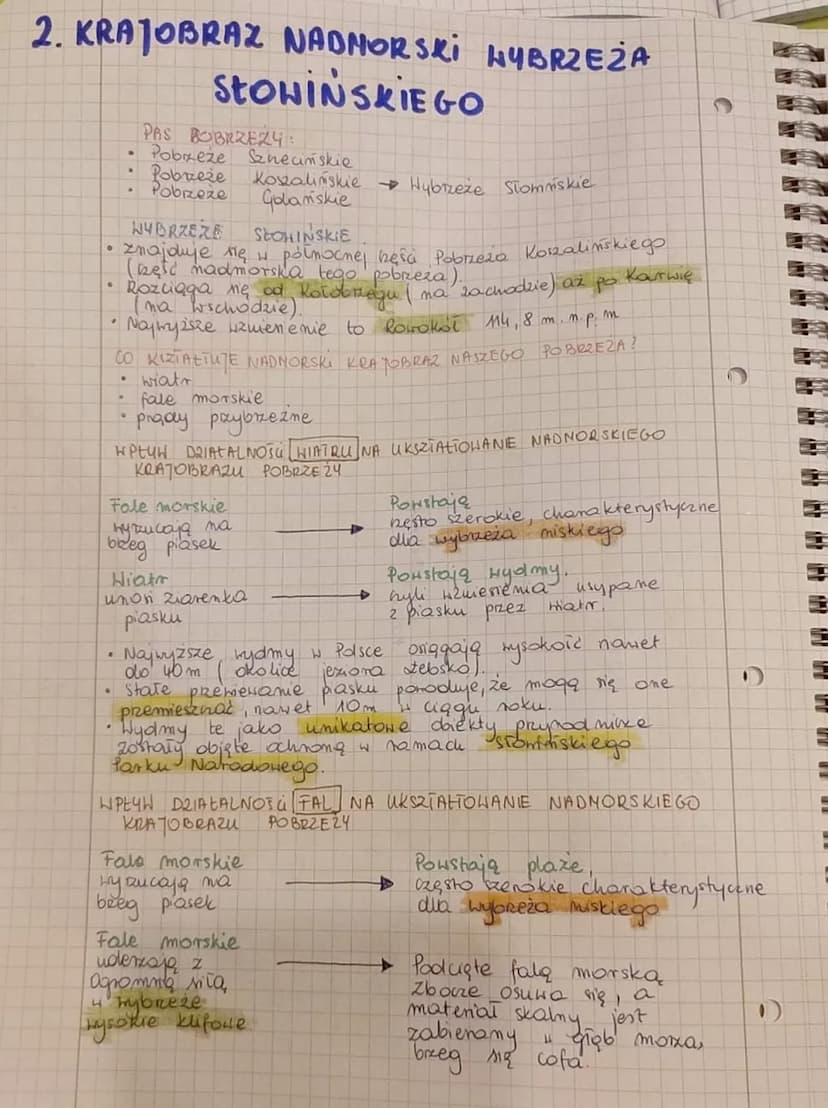 2. KRAJOBRAZ NADMORSKI WYBRZEŻA
SŁOWIŃSKIEGO
PAS POBRZEŻY:
• Pobrzeże Szczecińskie
• Pobrzeże Koszalińskie → Wybrzeże Słowińskie
• Pobrzeże Gdańskie
WYBRZEŻE SŁOWIŃSKIE
• znajduje się w północnej części Pobrzeża Koszalińskiego
(część nadmorska tego pobrzeża).
• Rozciąga się od Kołobrzegu (na zachodzie) aż po Karwię
(na wschodzie).
• Najwyższe wzniesienie to Rowokół 114,8 m.n.p.m
CO KSZTAŁTUJE NADMORSKI KRAJOBRAZ NASZEGO POBRZEŻA?
• wiatr
• fale morskie
• prądy przybrzeżne
WPŁYW DZIAŁALNOŚCI WIATRU NA UKSZTAŁTOWANIE NADMORSKIEGO
KRAJOBRAZU POBRZEŻY
Fale morskie
wyrzucają na
brzeg piasek
→
Powstają
często szerokie, charakterystyczne
dla wybrzeża niskiego
Wiatr
unosi ziarenka
piasku
→
Powstają wydmy,
czyli wzniesienia usypane
z piasku przez wiatr.
• Najwyższe wydmy w Polsce osiągają wysokość nawet
do 40m (okolice jeziora Łebsko).
• Stałe przewiewanie piasku powoduje, że mogą się one
przemieszczać, nawet 10m w ciągu roku.
• Wydmy te jako unikatowe obiekty przyrodnicze
zostały objęte ochroną w ramach Słowińskiego
Parku Narodowego.
WPŁYW DZIAŁALNOŚCI FAL NA UKSZTAŁTOWANIE NADMORSKIEGO
KRAJOBRAZU POBRZEŻY
Fale morskie
wyrzucają na
brzeg piasek
→
Powstają plaże,
często szerokie charakterystyczne
dla wybrzeża niskiego
Fale morskie
uderzają z
ogromną siłą
w wybrzeże
wysokie klifowe
→
Podcięte falą morską
zbocze osuwa się, a
materiał skalny jest
zabierany w głąb morza,
brzeg się cofa.